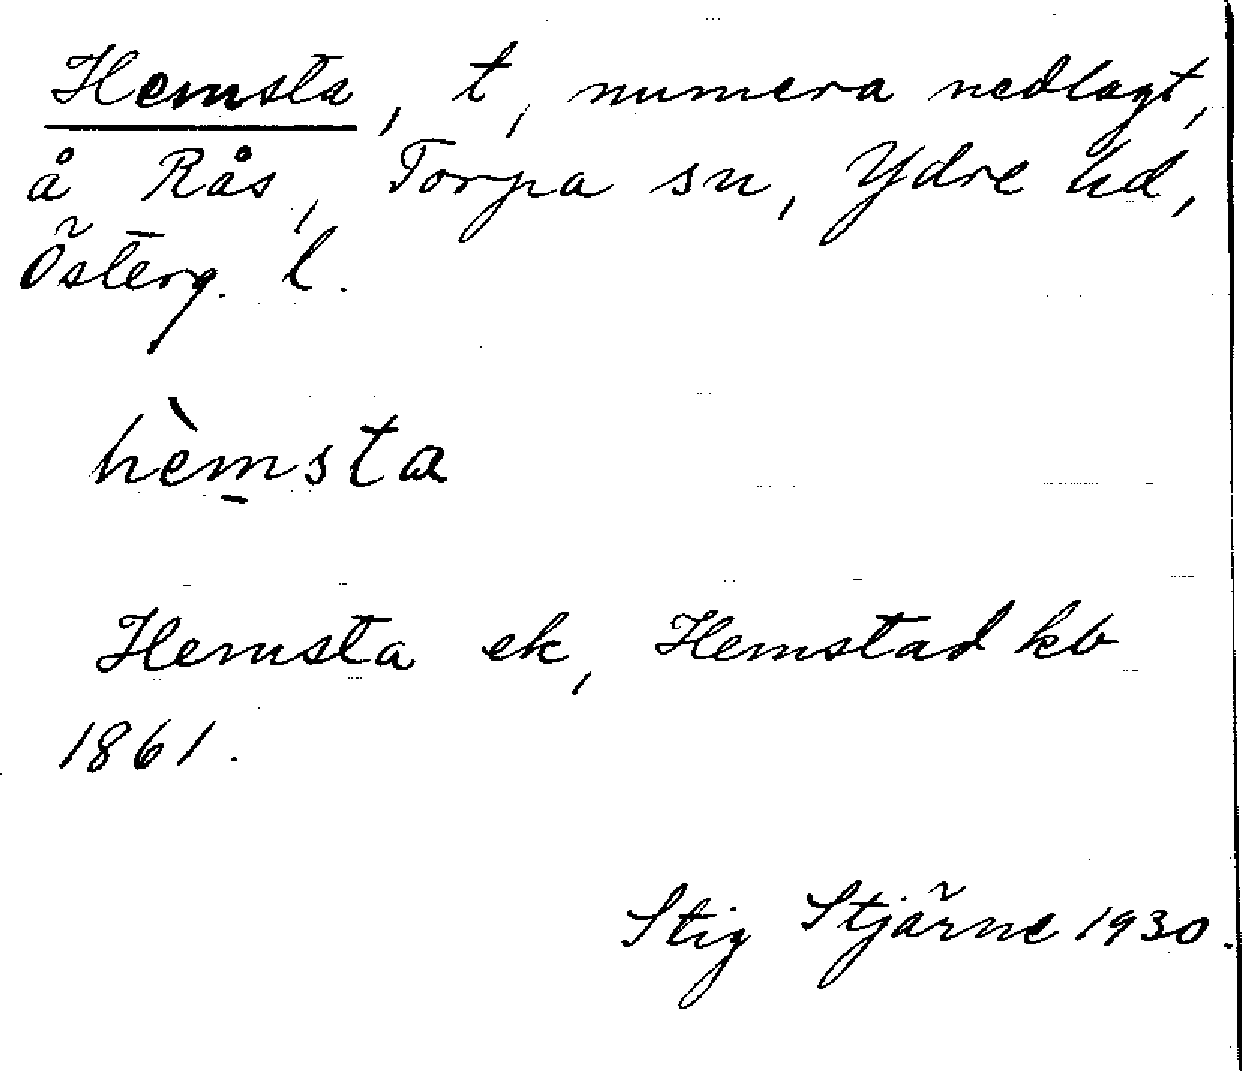 Hemsta, t, numera nedlagt,
å Rås, Torpa sn, Ydre hd,
Österg. l.
hèm̠sta
Hemsta ek, Hemstad kb
1861.
Stig Stjärne 1930.